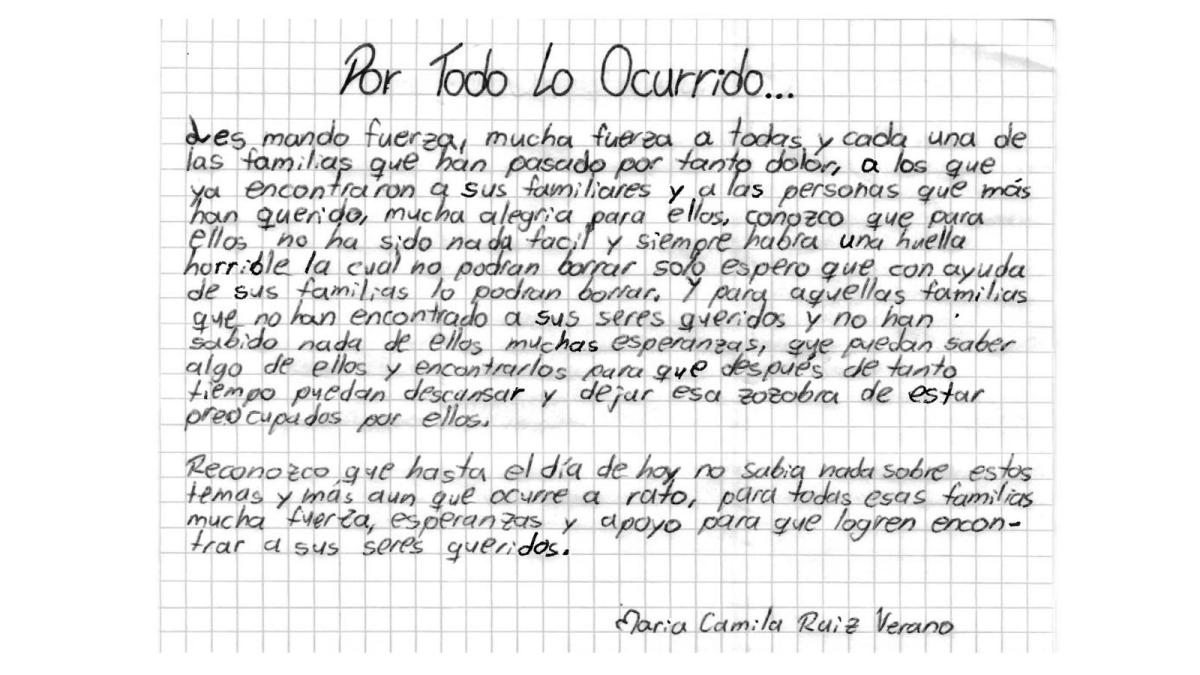 Por Todo Lo Ocurrido...
Les mando fuerza, mucha fuerza a todas y cada una de
las familias que han pasado por tanto dolor, a los que
ya encontraron a sus familiares y a las personas que más
han querido, mucha alegria para ellos, conozco que para
ellos no ha sido nada facil y siempre habra una huella
horrible la cual no podran borrar solo espero que con ayuda
de sus familias lo podran borrar. Y para aquellas familias
que no han encontrado a sus seres queridos y no han
sabido nada de ellos muchas esperanzas, que puedan saber
algo de ellos y encontrarlos para que después de tanto
tiempo puedan descansar y dejar esa zozobra de estar
preocupados por ellos.
Reconozco que hasta el día de hoy no sabia nada sobre estos
temas y más aun que ocurre a rato, para todas esas familias
mucha fuerza, esperanzas y apoyo para que logren encon-
trar a sus seres queridos.
Maria Camila Ruiz Verano